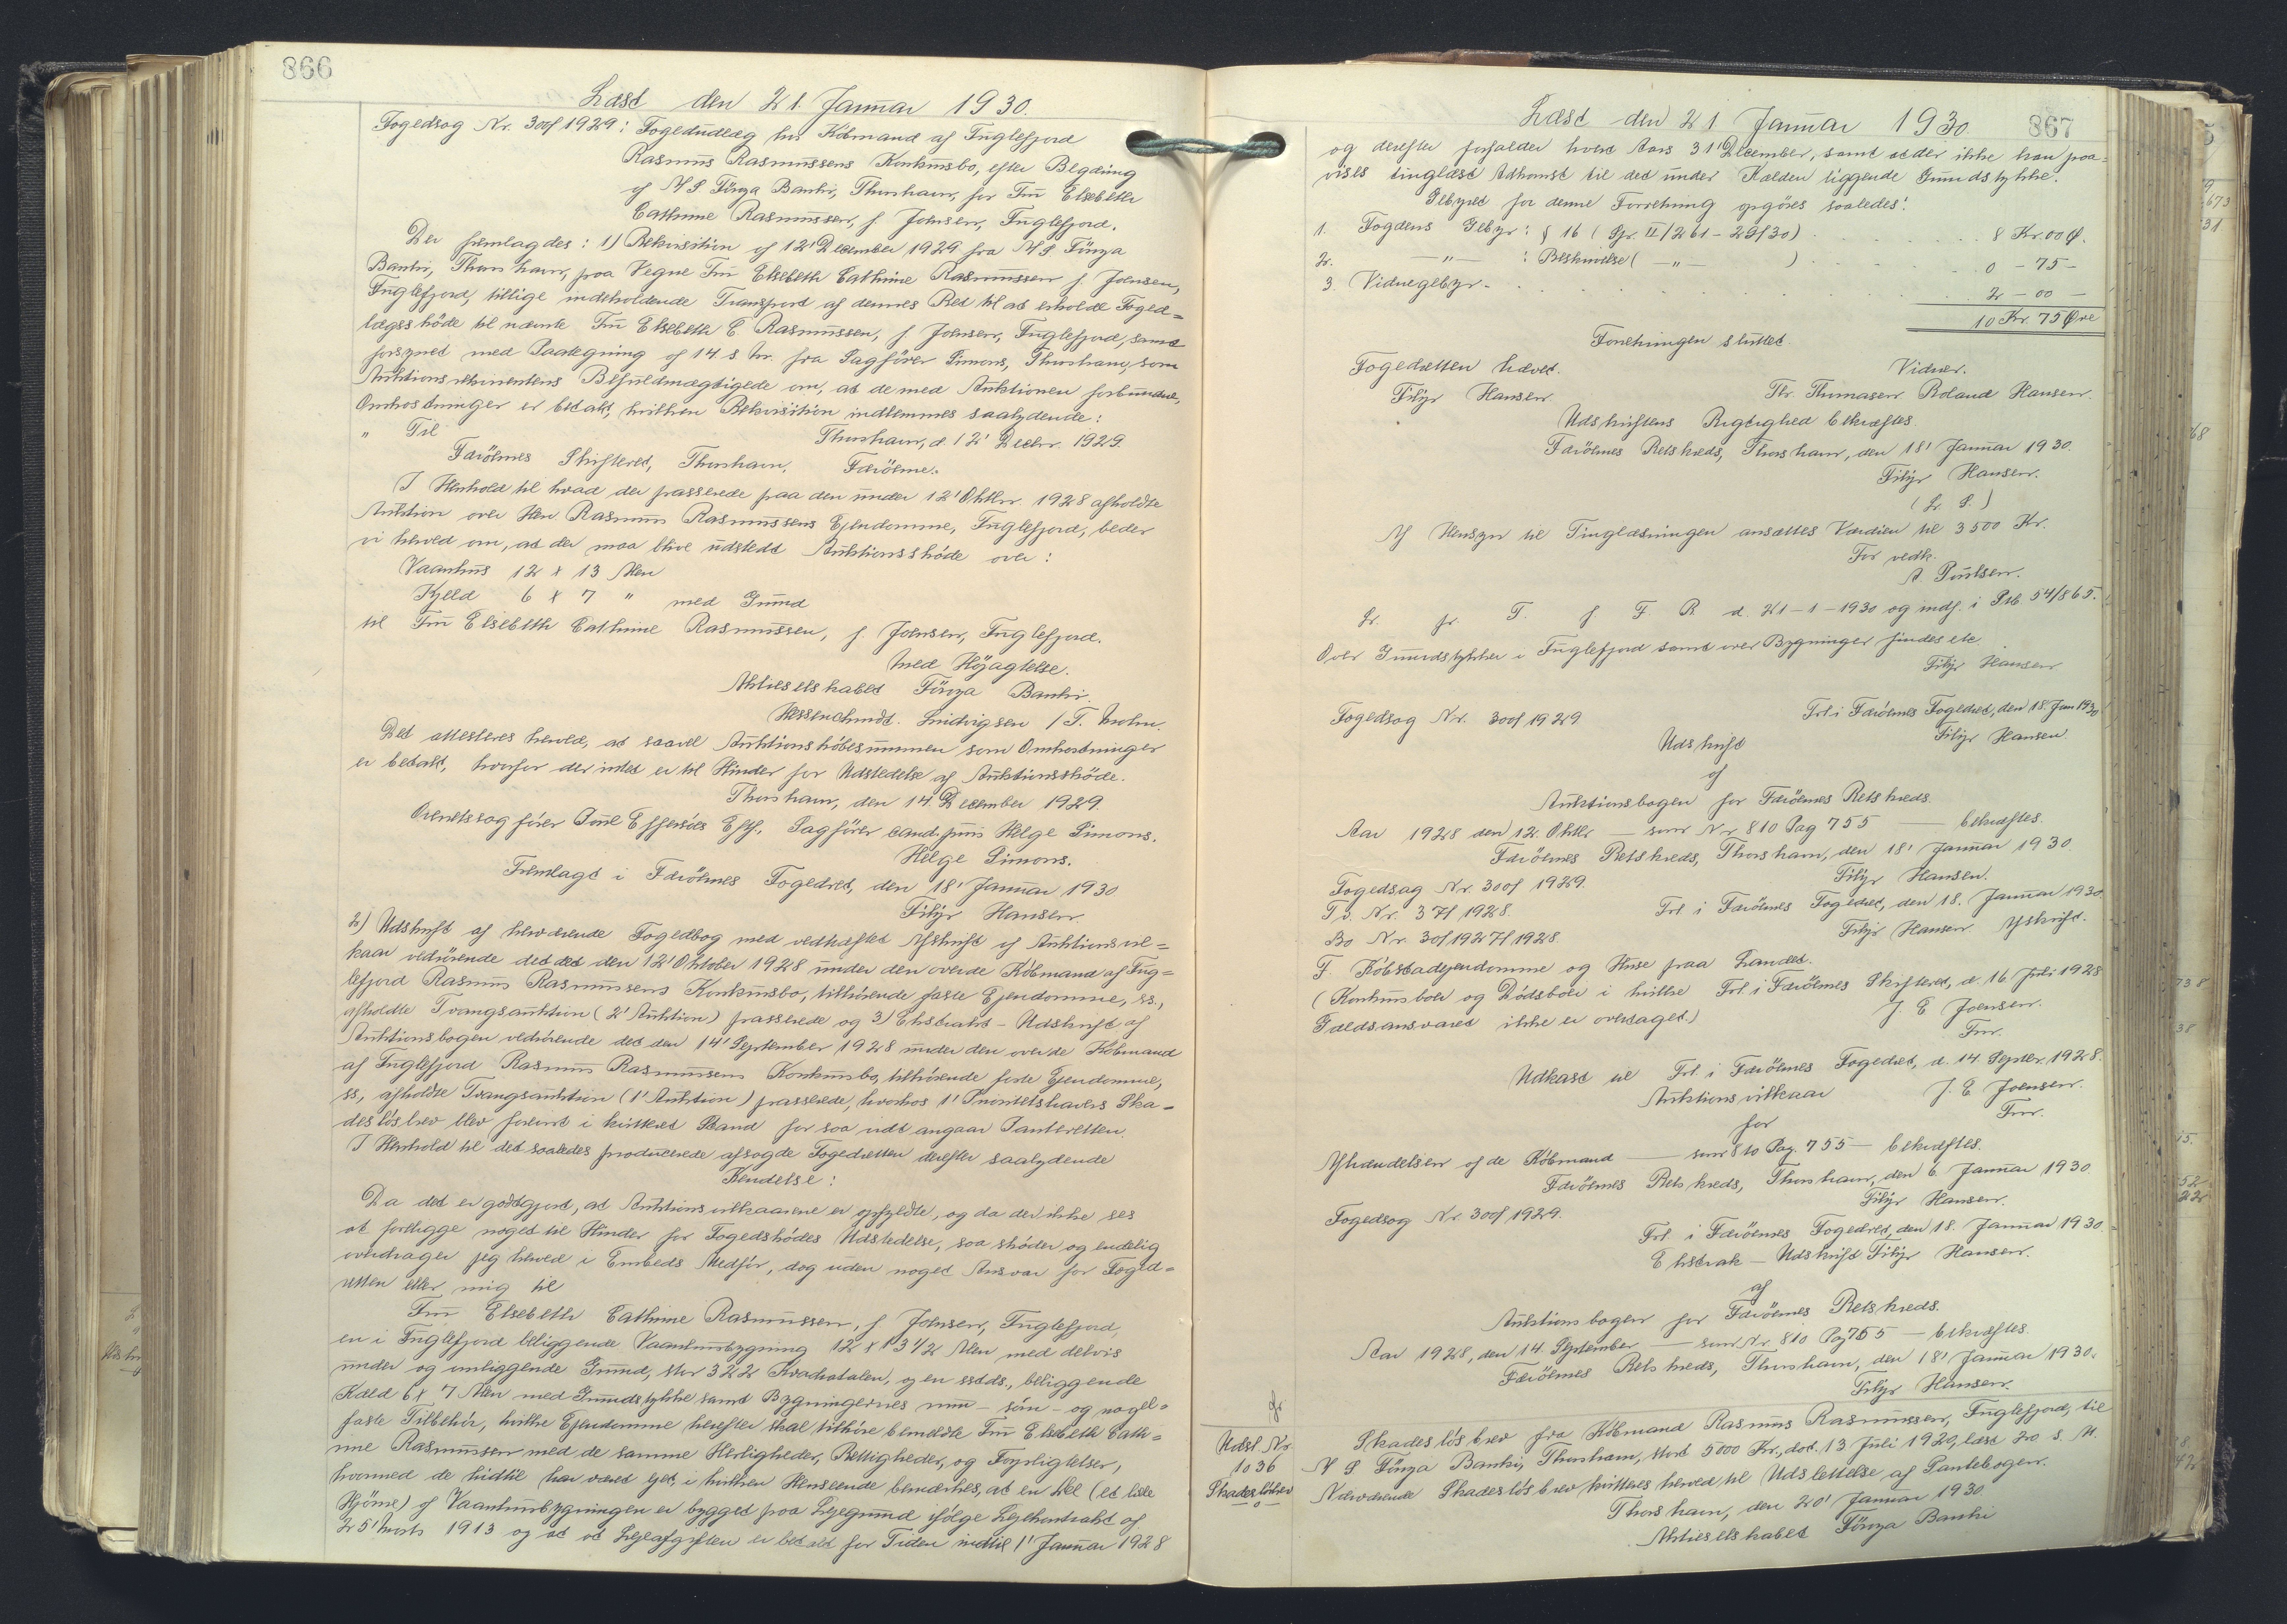 866
Læst den 21. Januar 1930.
Fogedsag Nr. 300/1929: Fogedudlæg hos Købmand af Fuglefjord
Rasmus Rasmussens Konkursbo, efter Begæring
af A/S Föroya Banki, Thorshavn, for Fru Elsebeth
Cathrine Rasmussen, f. Joensen, Fuglefjord.
Der fremlagdes: 1) Rekvisition af 12' December 1929 fra A/S Föroya
Banki, Thorshavn, paa Vegne Fru Elsebeth Cathrine Rasmussen f. Joensen,
Fuglefjord, tillige indeholdende Transport af dennes Ret til at erholde Foged=
lægsskøde til nævnte Fru Elsebeth C. Rasmussen, f. Joensen, Fuglefjord, samt
forsynet med Paategning af 14 s. M. fra Sagfører Simons, Thorshavn, som
Auktionsrekvirentens Befuldmægtigede om, at de med Auktionen forbundne,
Omkostninger er betalt, hvilken Rekvisition indlemmes saalydende:
" Til Thorshavn, d. 12' Decbr. 1929
Færöernes Skifteret, Thorshavn, Færöerne.
I Henhold til hvad der passerede paa den under 12' Oktbr. 1928 afholdte
Auktion over Herr Rasmus Rasmussens Ejendomme, Fuglefjord, beder
vi herved om, at der maa blive udstedt Auktionsskøde over:
Vaanhus 12 x 13 Alen
Kjeld 6 x 7 " med Grund
til Fru Elsebeth Cathrine Rasmussen, f. Joensen, Fuglefjord.
Med Højagtelse.
Aktieselskabet Föroya Banki.
Ludvigsen / T. Mohr.
Det attesteres herved, at saavel Auktionskøbesummen som Omkostninger
er betalt, hvorfor der intet er til Hinder for Udstedelse af Auktionsskøde.
Thorshavn, den 14. December 1929.
Overretssagfører Poul Effersöes Eftf. Sagfører cand. juris Helge Simons.
Helge Simons.
Fremlagt i Færöernes Fogedret, den 18' Januar 1930
Filip Hansen.
2) Udskrift af nærværende Fogedbog med vedhæftet Afskrift af Auktionsvil=
kaar vedrørende det det den 12' Oktober 1928 under den overde Købmand af Fug=
lefjord Rasmus Rasmussens Konkursbo, tilhørende faste Ejendomme, ss.,
afholdte Tvangsauktion (2' Auktion) passerede og 3) Ekstrakt-Udskrift af
Auktionsbogen vedrørende det den 14' September 1928 under den over de Købmand
af Fuglefjord Rasmus Rasmussens Konkursbo, tilhørende faste Ejendomme,
ss, afholdte Tvangsauktion (1' Auktion) passerede, hvorhos 1' Prioritetshavers Ska=
desløsbrev blev forevist i kvitteret Stand for saa vidt angaar Panteretten.
I Henhold til det saaledes producerede afsagde Fogedretten derefter saalydende
Kendelse:
Da det er godtgjort, at Auktionsvilkaarene er opfyldte, og da der ikke ses
at foreligge noget til Hinder for Fogedskødes Udstedelse, saa skøder og endelig
overdrager jeg herved i Embeds Medfør, dog uden noget Ansvar for Foged=
retten eller mig til
Fru Elsebeth Cathrine Rasmussen, f. Joensen, Fuglefjord,
en i Fuglefjord beliggende Vaanhusbygning 12 x 13 1/2 Alen med delvis
under og omliggende Grund, stor 322 Kvadratalen, og en sstds., beliggende
Kæld 6 x 7 Alen med Grundstykke samt Bygningernes mur- söm- og nagel=
faste Tilbehör, hvilke Ejendomme herefter skal tilhöre bemeldte Fru Elsebeth Cath=
rine Rasmussen med de samme Herligheder, Rettigheder, og Forpligtelser,
hvormed de hidtil har været ejet, i hvilken Henseende bemærkes, at en Del (et lille
Hjörne) af Vaanhusbygningen er bygget paa Lejegrund ifölge Lejekontrakt af
25' Marts 1913 og at at Lejeafgiften er betalt for Tiden indtil 1' Januar 1928
Læst den 21 Januar 1930 867
og derefter forfalder hvert Aars 31' December, samt at der ikke kan paa=
vises tinglæst Adkomst til det under Kælden liggende Grundstykke.
Gebyret for denne Forretning opgöres saaledes:
1. Fogdens Gebyr: § 16 (Gr. II/261-29/30) . . . 8 Kr. 00 Ø.
2. -"- : Beskrivelse ( -"- ) . . . 0 - 75 -
3 Vidnegebyr . . . 2 - 00 -
10 Kr. 75 Øre
Forretningen sluttet.
Fogedretten hævet. Vidner.
Filip Hansen. Thr. Thomasen. Roland Hansen.
Udskriftens Rigtighed bekræftes
Færöernes Retskreds, Thorshavn, den 18' Januar 1930.
Filip Hansen.
(L. S.)
Af Hensyn til Tinglæsningen ansættes Værdien til 3500 Kr.
For vedk.
A. Poulsen.
L. fr. T. f F. R d. 21-1-1930 og indf. i Ptb. 54/865.
Over Grundstykker i Fuglefjord samt over Bygninger findes etc.
Filip Hansen
Fogedsag Nr. 300/1929. Frl. i Færöernes Fogedret, den 18. Jan 1930
Udskrift Filip Hansen.
af
Auktionsbogen for Færöernes Retskreds.
Aar 1928 den 12. Oktbr. — som Nr 810 Pag 755 — bekræftes.
Færöernes Retskreds, Thorshavn, den 18' Januar 1930.
Filip Hansen.
Fogedsag Nr. 300/1929.
T v. Nr. 37/1928. Frl. i Færöernes Fogedret, den 18. Januar 1930.
Bo Nr. 30/1927/1928. Filip Hansen. Afskrift.
F. Købstadejendomme og Huse paa Landet.
(Konkursboer og Dödsboer i hvilke Frl. i Færöernes Skifteret, d. 16 Juli 1928
Gældsansvaret ikke er overtaget.) J. E Joensen.
Fm.
Udkast til Frl. i Færöernes Fogedret, d. 14 Septbr. 1928.
Auktionsvilkaar J. E. Joensen.
for Fm.
Afhændelsen af de Købmand — som 810 Pag. 755 — bekræftes.
Færöernes Retskreds, Thorshavn, den 6. Januar 1930.
Filip Hansen.
Fogedsag Nr. 300/1929.
Frl. i Færöernes Fogedret, den 18. Januar 1930
Ekstrak - Udskrift Filip Hansen.
af
Auktionsbogen for Færöernes Retskreds.
Aar 1928, den 14. September — som Nr 810 Pag 755 — bekræftes.
Færöernes Retskreds, Thorshavn, den 18' Januar 1930.
Filip Hansen.
Udsl. Nr.
1036
Skadeslösbrev
Skadeslösbrev fra Købmand Rasmus Rasmussen, Fuglefjord, til
A S Föroya Banki, Thorshavn, stort 5000 Kr., dat. 13 Juli 1920, læst 20 s. M.
Nærværende Skadeslösbrev kvitteres herved til Udslettelse af Pantebogen.
Thorshavn, den 20' Januar 1930
Aktieselskabet Föroya Banki